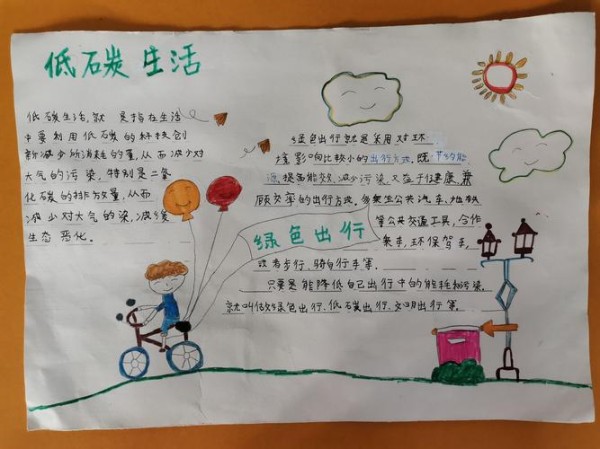 低碳生活
低碳生活,就 是指在生活
中要利用低碳的科技创
新减少所消耗的量,从而减少对
大气的污染,特别是二氧
化碳的排放量,从而
减少对大气的染,减缓
生态 恶化。
绿色出行就是采用对环
境影响比较小的出行方式,既节约能
源,提高能效,减少污染,又益于健康,兼
顾效率的出行方式。多乘坐公共汽车,地铁
等公共交通工具,合作
乘车,环保驾车,
绿色出行
或者步行,骑自行车等。
只要是能降低自己出行中的能耗和污染,
就叫做绿色出行、低碳出行、文明出行等。